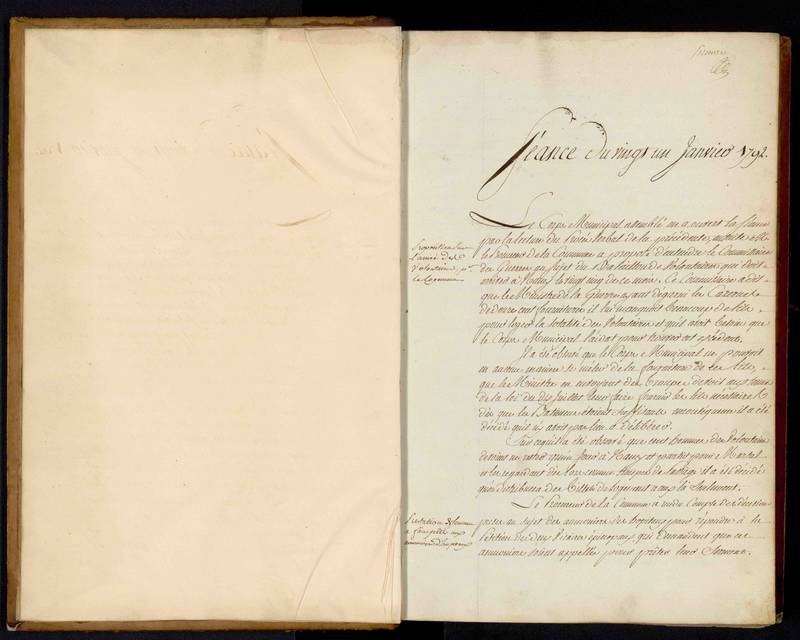 Premier
Séance du vingt un Janvier 1792.
Le Corps Municipal assemblé on a ouvert la séance
par la lecture du Procès Verbal de la précédente, ensuite M.
le Procureur de la Commune a proposé d'entendre le Commissaire
des Guerres au sujet du Bataillon de Volontaires qui doit
arriver à Nancy le vingt cinq de ce mois. Ce Commissaire a dit
que le Ministre de la Guerre ayant désigné les Casernes
dont la fourniture il lui manquoit beaucoup de lits
pour loger la totalité des Volontaires et qu'il avoit besoin que
le Corps Municipal l'aidât pour trouver cet excédent.
Il a été observé que le Corps Municipal ne pouvoit
en aucune manière se mêler de la fourniture de ces lits,
que le Ministre en envoyant des troupes devoit aux termes
de la loi du dix Juillet leur faire fournir les lits nécessaires
dès que les Batimens étoient suffisans, en conséquence il a été
décidé qu'il n'y avoit pas lieu à délibérer.
Sur ce qu'il a été observé que cent hommes des Volontaires
devoient ne rester qu'un jour à Nancy et partir pour Marsal
et les regardant dès lors comme troupes de passage il a été décidé
qu'on distribuera des Billets de logement à ceux là seulement.
Le Procureur de la Commune a rendu Compte des décisions
prises au sujet des aumoniers des hopitaux pour répondre à la
Pétition des deux Vicaires épiscopaux qui demandoient que ces
aumoniers soient appellés pour prêter leur Serment.
Proposition sur
l'arrivée des
Volontaires pr.
le Logement
Prestation de serment
à faire prêter aux
aumoniers d'hopitaux